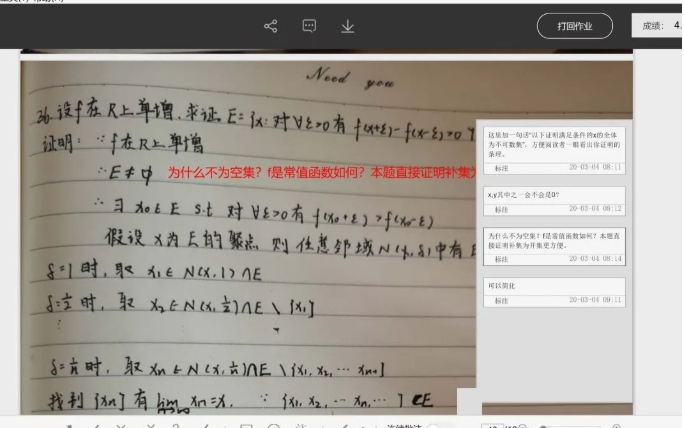 打回作业
成绩： 4.
Need you
36.设f在R上单增，求证 E={x: 对∀ε>0有 f(x+ε)-f(x-ε)>0
证明： ∵f在R上单增
∴E≠ф 为什么不为空集？f是常值函数如何？本题直接证明补集
∴∃ x₀∈E s.t 对∀ε>0有 f(x₀+ε)>f(x₀-ε)
假设 x为E的聚点 则 任意邻域N(x,δ)中有E
δ=1时，取 x₁∈N(x,1)∩E
δ=½时，取 x₂∈N(x,½)∩E\{x₁}
δ=1/n时，取 xₙ∈N(x,1/n)∩E\{x₁,x₂,…xₙ₋₁}
找到{xₙ}有 lim xₙ=x, ∵{x₁,x₂,…xₙ,…}⊂E
这里加一句话"以下证明满足条件的x的全体
为不可数集"，方便阅读者一眼看出你证明的
条理。
标注 20-03-04 08:11
x,y其中之一会不会是0?
标注 20-03-04 08:12
为什么不为空集？f是常值函数如何？本题直
接证明补集为开集更方便。
标注 20-03-04 08:14
可以简化
标注 20-03-04 09:11